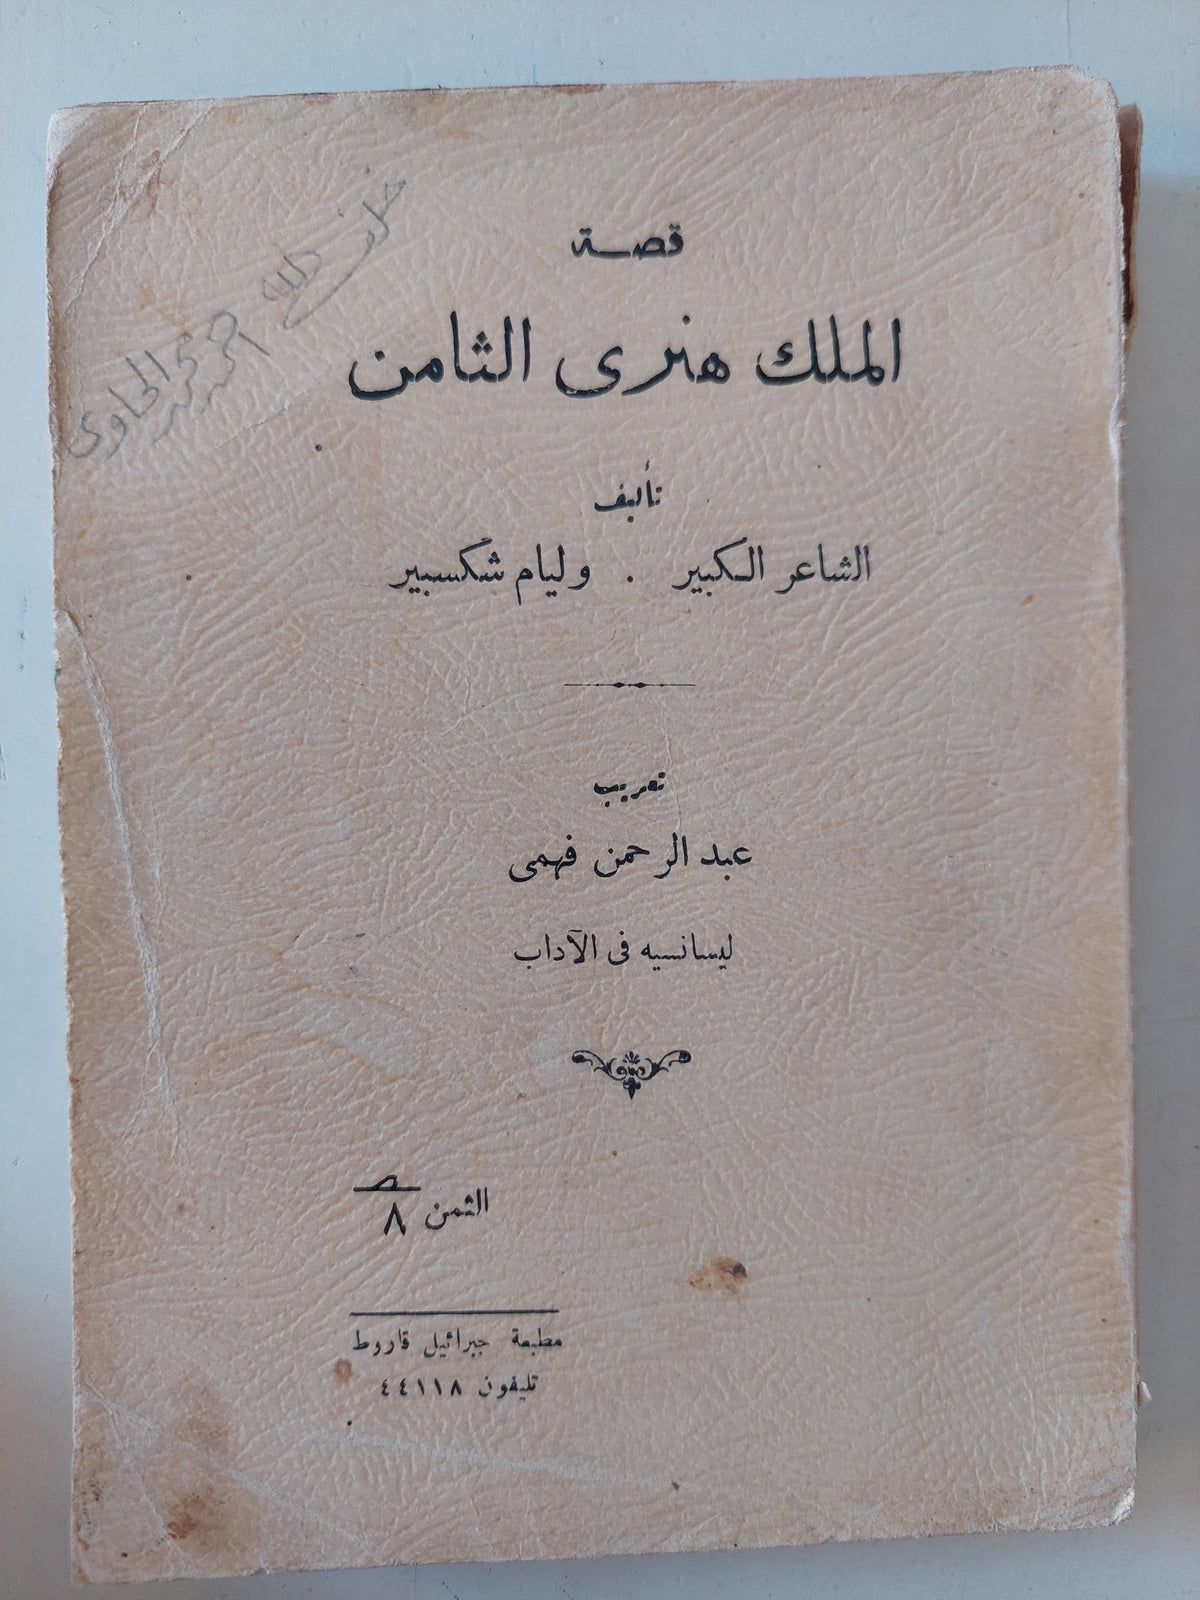 خلف الله احمد محمد الحاوى
قصة
الملك هنرى الثامن
تأليف
الشاعر الكبير . وليام شكسبير
تعريب
عبد الرحمن فهمى
ليسانسيه فى الآداب
الثمن ٨
مطبعة جبرائيل قاروط
تليفون ٤٤١١٨